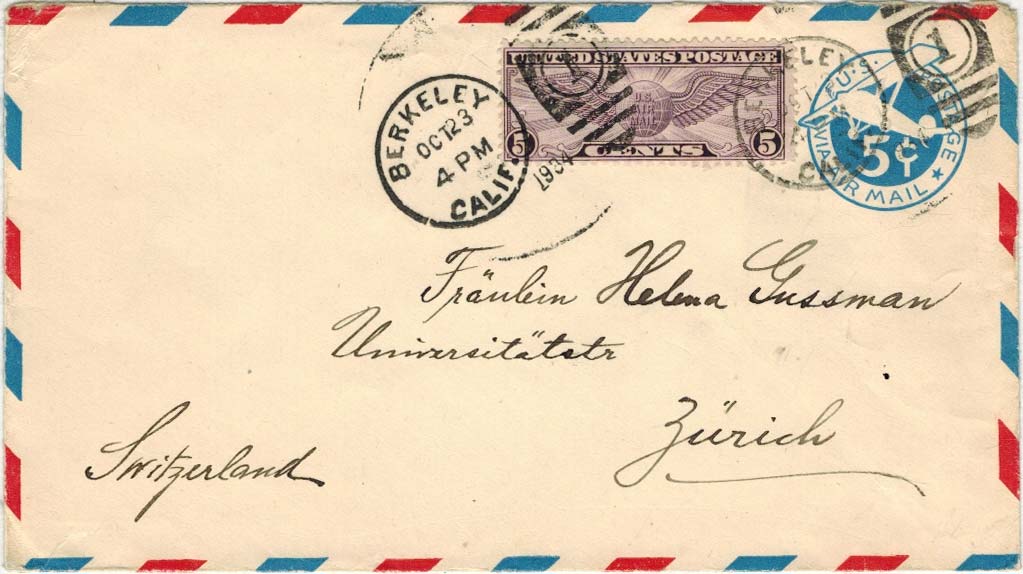 UNITED STATES POSTAGE
U.S.
AIR
MAIL
5 CENTS 5
BERKELEY
OCT 23
4 PM
CALIF.
1934
1
1
U.S. POSTAGE
5¢
VIA AIR MAIL
Fräulein Helena Gussman
Universitätstr
Zürich
Switzerland